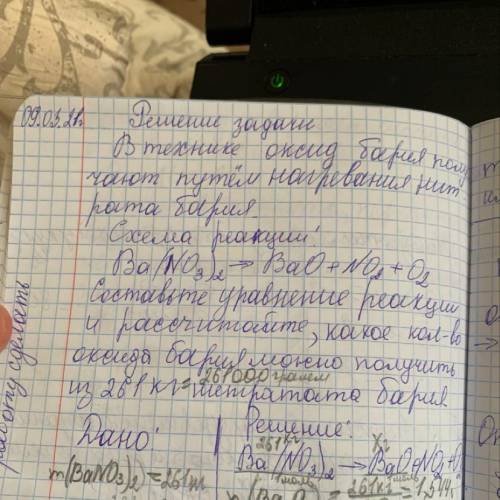 09.03.21г.
Решение задачи
В технике оксид бария полу
чают путём нагревания нит
рата бария.
Схема реакции:
Ba(NO₃)₂ → BaO + NO₂ + O₂
Составьте уравнение реакции
и рассчитайте, какое кол-во
оксида бария можно получить
из 261 кг = 261000 грамм
нитрата бария.
Дано:
Решение:
261кг
Xг
m(Ba(NO₃)₂) = 261
Ba(NO₃)₂ → BaO + NO₂ + O
1 моль
работу сделать